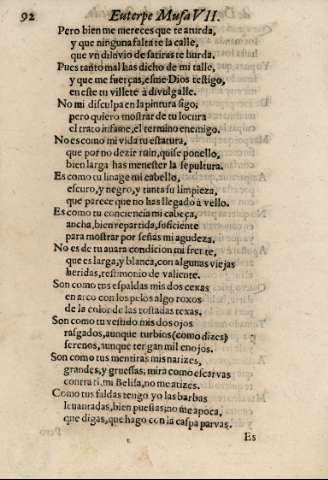 92 Euterpe Musa VII.
Pero bien me mereces que te aturda,
y que ninguna falta te la calle,
que vn diluvio de satiras te hurda.
Pues tanto mal has dicho de mi talle,
y que me fuerças, esme Dios testigo,
en este tu villete à divulgalle.
No mi disculpa en la pintura sigo,
pero quiero mostrar de tu locura
el trato infame, el termino enemigo.
No es como mi vida tu estatura,
que por no dezir ruin, quise ponello,
bien larga has menester la sepultura.
Es como tu linage mi cabello,
escuro, y negro, y tanta su limpieza,
que parece que no has llegado à vello.
Es como tu conciencia mi cabeça,
ancha, bien repartida, suficiente
para mostrar por señas mi agudeza.
No es de tu auara condicion mi frente,
que es larga, y blanca, con algunas viejas
heridas, testimonio de valiente.
Son como tus espaldas mis dos cexas
en arco con los pelos algo roxos
de la color de las tostadas texas.
Son como tu vestido mis dos ojos
rasgados, aunque turbios (como dizes)
serenos, aunque tengan mil enojos.
Son como tus mentiras mis narizes,
grandes, y gruessas; mira como escarvas
contra ti, mi Belisa, no me atizes.
Como tus faldas tengo yo las barbas
leuantadas, bien puestas; no me apoca,
que digas, que hago con la caspa parvas.
Es